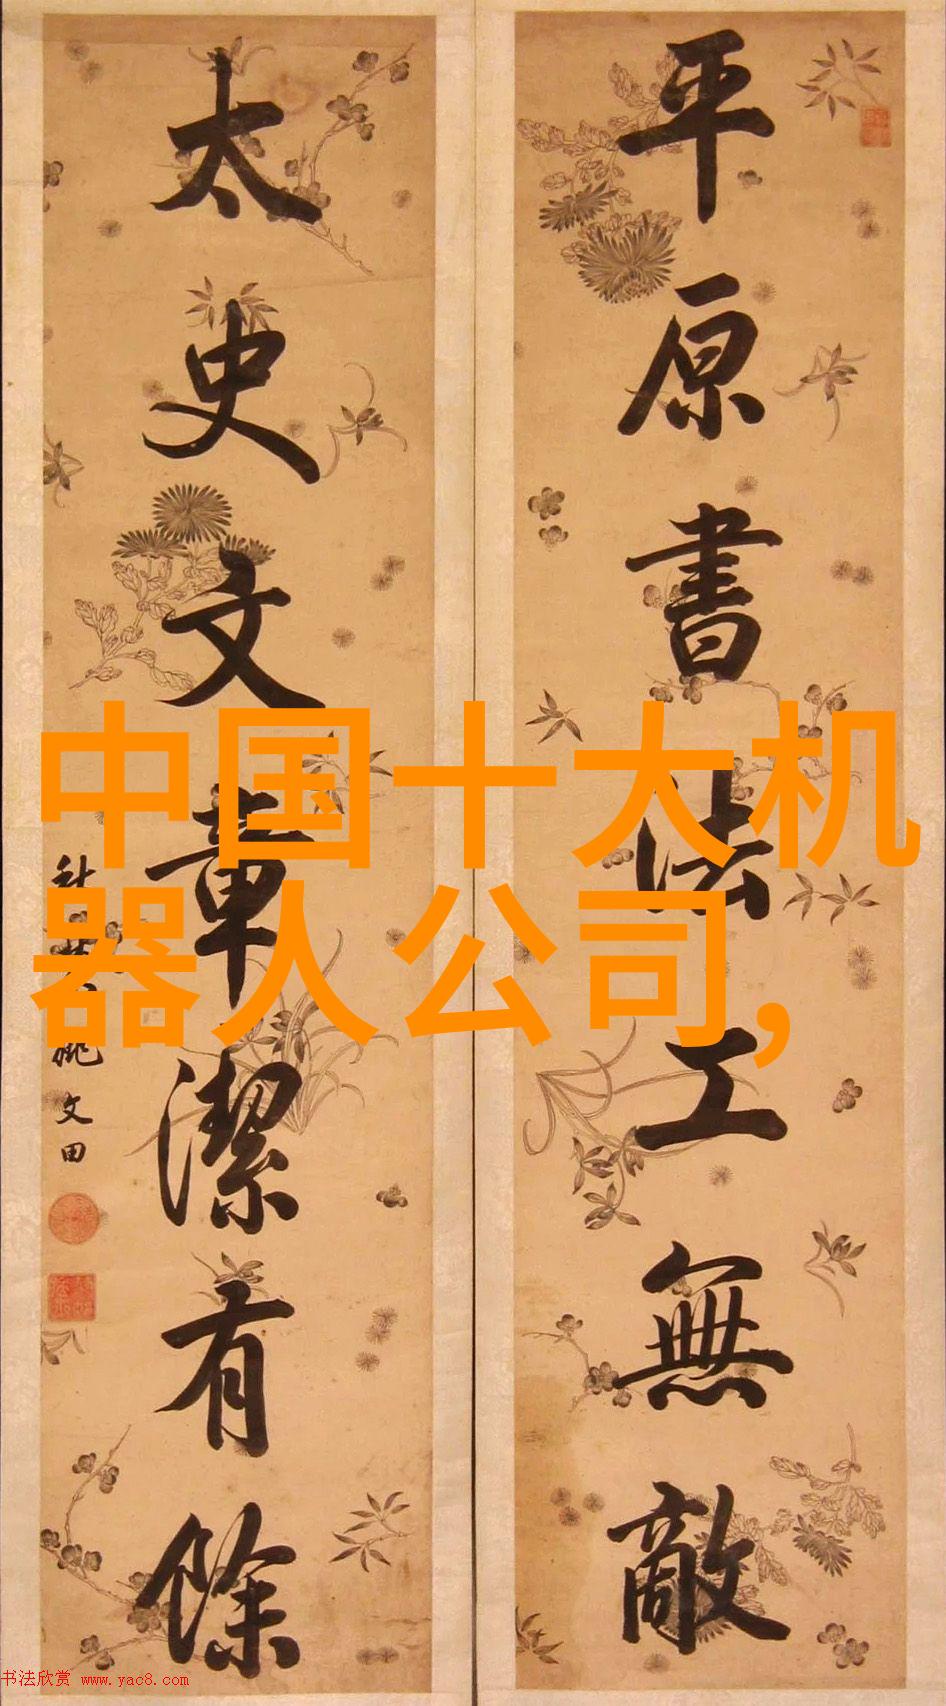 平原書法工無敵
太史文章潔有餘
文田
中国十大机
器人公司,
书法欣赏 www.yac8.com